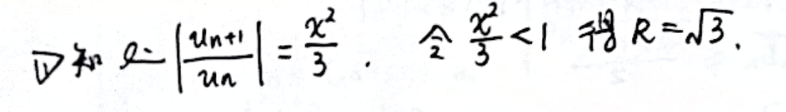 可知 lim |u_{n+1}/u_n| = x²/3 . 令 x²/3 < 1 得 R=√3.